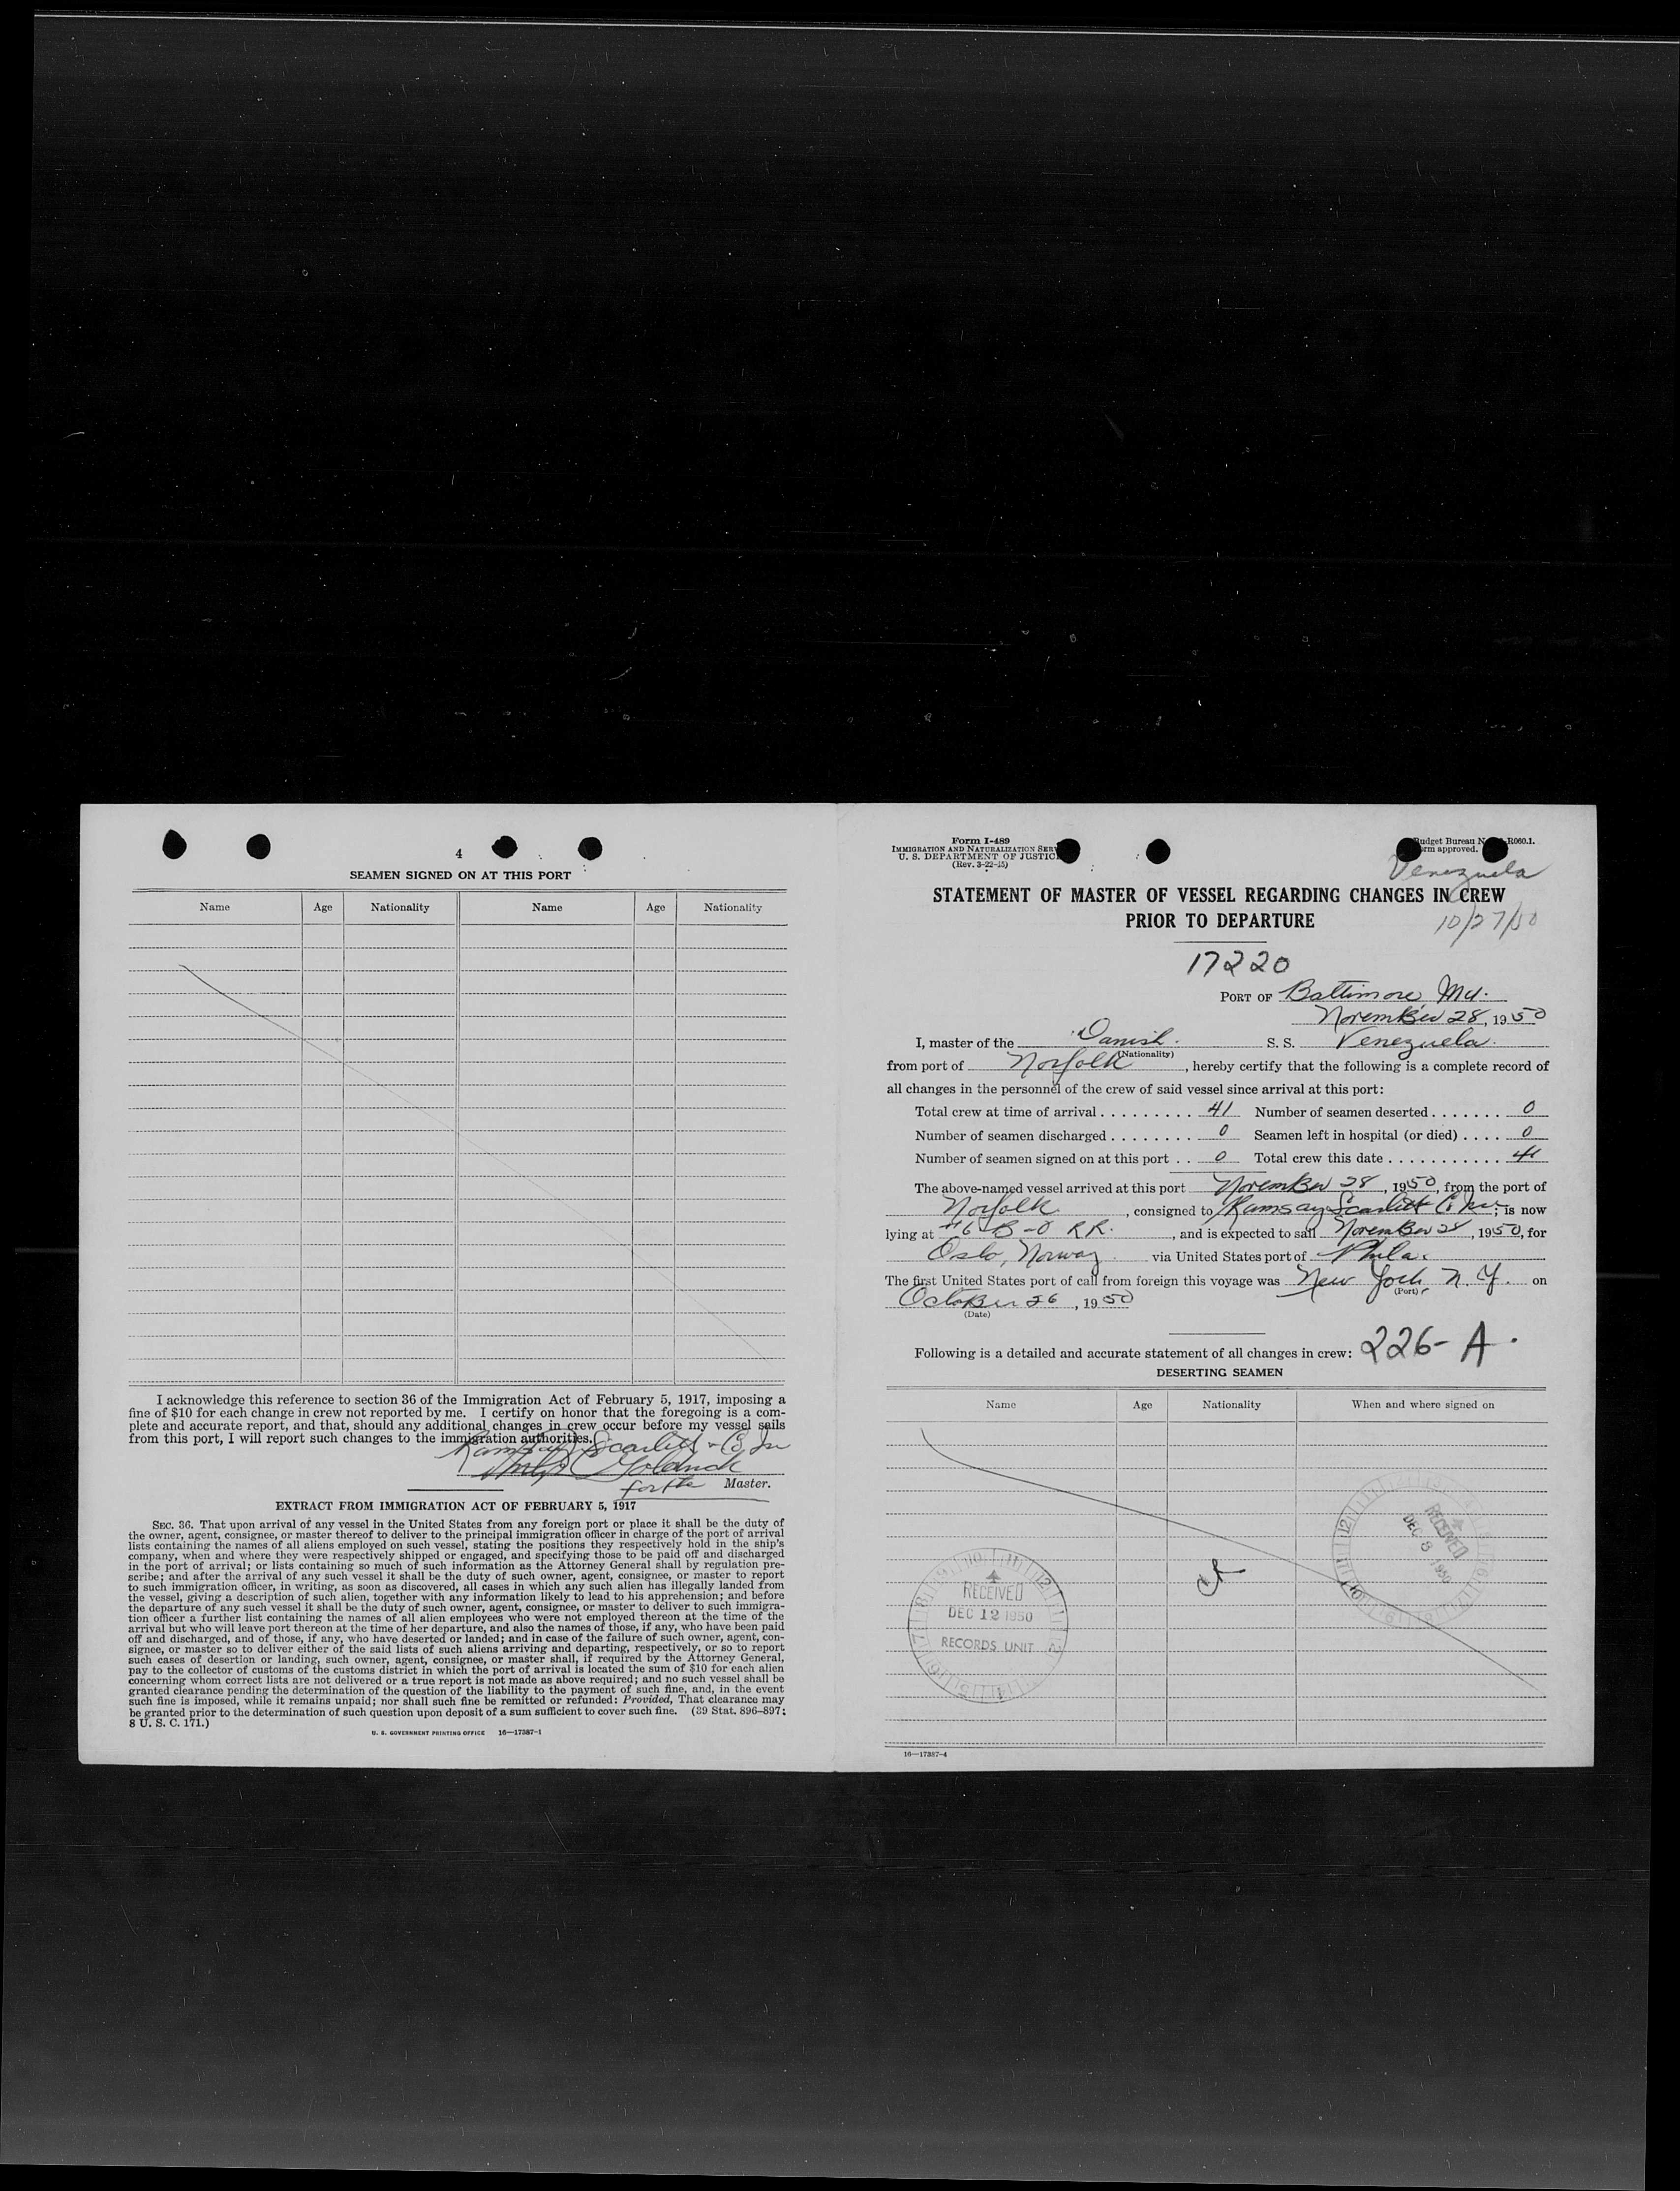 4
SEAMEN SIGNED ON AT THIS PORT
Name Age Nationality Name Age Nationality
I acknowledge this reference to section 36 of the Immigration Act of February 5, 1917, imposing a
fine of $10 for each change in crew not reported by me. I certify on honor that the foregoing is a com-
plete and accurate report, and that, should any additional changes in crew occur before my vessel sails
from this port, I will report such changes to the immigration authorities.
Ramsay Scarlett & Co Inc
for the Master.
EXTRACT FROM IMMIGRATION ACT OF FEBRUARY 5, 1917
SEC. 36. That upon arrival of any vessel in the United States from any foreign port or place it shall be the duty of
the owner, agent, consignee, or master thereof to deliver to the principal immigration officer in charge of the port of arrival
lists containing the names of all aliens employed on such vessel, stating the positions they respectively hold in the ship's
company, when and where they were respectively shipped or engaged, and specifying those to be paid off and discharged
in the port of arrival; or lists containing so much of such information as the Attorney General shall by regulation pre-
scribe; and after the arrival of any such vessel it shall be the duty of such owner, agent, consignee, or master to report
to such immigration officer, in writing, as soon as discovered, all cases in which any such alien has illegally landed from
the vessel, giving a description of such alien, together with any information likely to lead to his apprehension; and before
the departure of any such vessel it shall be the duty of such owner, agent, consignee, or master to deliver to such immigra-
tion officer a further list containing the names of all alien employees who were not employed thereon at the time of the
arrival but who will leave port thereon at the time of her departure, and also the names of those, if any, who have been paid
off and discharged, and of those, if any, who have deserted or landed; and in case of the failure of such owner, agent, con-
signee, or master so to deliver either of the said lists of such aliens arriving and departing, respectively, or so to report
such cases of desertion or landing, such owner, agent, consignee, or master shall, if required by the Attorney General,
pay to the collector of customs of the customs district in which the port of arrival is located the sum of $10 for each alien
concerning whom correct lists are not delivered or a true report is not made as above required; and no such vessel shall be
granted clearance pending the determination of the question of the liability to the payment of such fine, and, in the event
such fine is imposed, while it remains unpaid; nor shall such fine be remitted or refunded: Provided, That clearance may
be granted prior to the determination of such question upon deposit of a sum sufficient to cover such fine. (39 Stat. 896–897;
8 U. S. C. 171.)
U. S. GOVERNMENT PRINTING OFFICE 16—17387-1
Form I-489
IMMIGRATION AND NATURALIZATION SER
U. S. DEPARTMENT OF JUSTIC
(Rev. 3-22-45)
Budget Bureau N R060.1.
rm approved.
Venezuela
STATEMENT OF MASTER OF VESSEL REGARDING CHANGES IN CREW
PRIOR TO DEPARTURE
10/27/50
17220
PORT OF Baltimore, Md.
November 28, 1950
I, master of the Danish S. S. Venezuela
(Nationality)
from port of Norfolk, hereby certify that the following is a complete record of
all changes in the personnel of the crew of said vessel since arrival at this port:
Total crew at time of arrival ......... 41 Number of seamen deserted ....... 0
Number of seamen discharged ........ 0 Seamen left in hospital (or died) .... 0
Number of seamen signed on at this port .. 0 Total crew this date ........... 41
The above-named vessel arrived at this port November 28, 1950, from the port of
Norfolk, consigned to Ramsay Scarlett Co Inc; is now
lying at B-O RR., and is expected to sail November 28, 1950, for
Oslo, Norway via United States port of Phila.
The first United States port of call from foreign this voyage was New York N. Y. on
(Port)
October 26, 1950
(Date)
Following is a detailed and accurate statement of all changes in crew: 226-A.
DESERTING SEAMEN
Name Age Nationality When and where signed on
RECEIVED
DEC 1950
RECEIVED
DEC 12 1950
RECORDS UNIT
16—17387-4